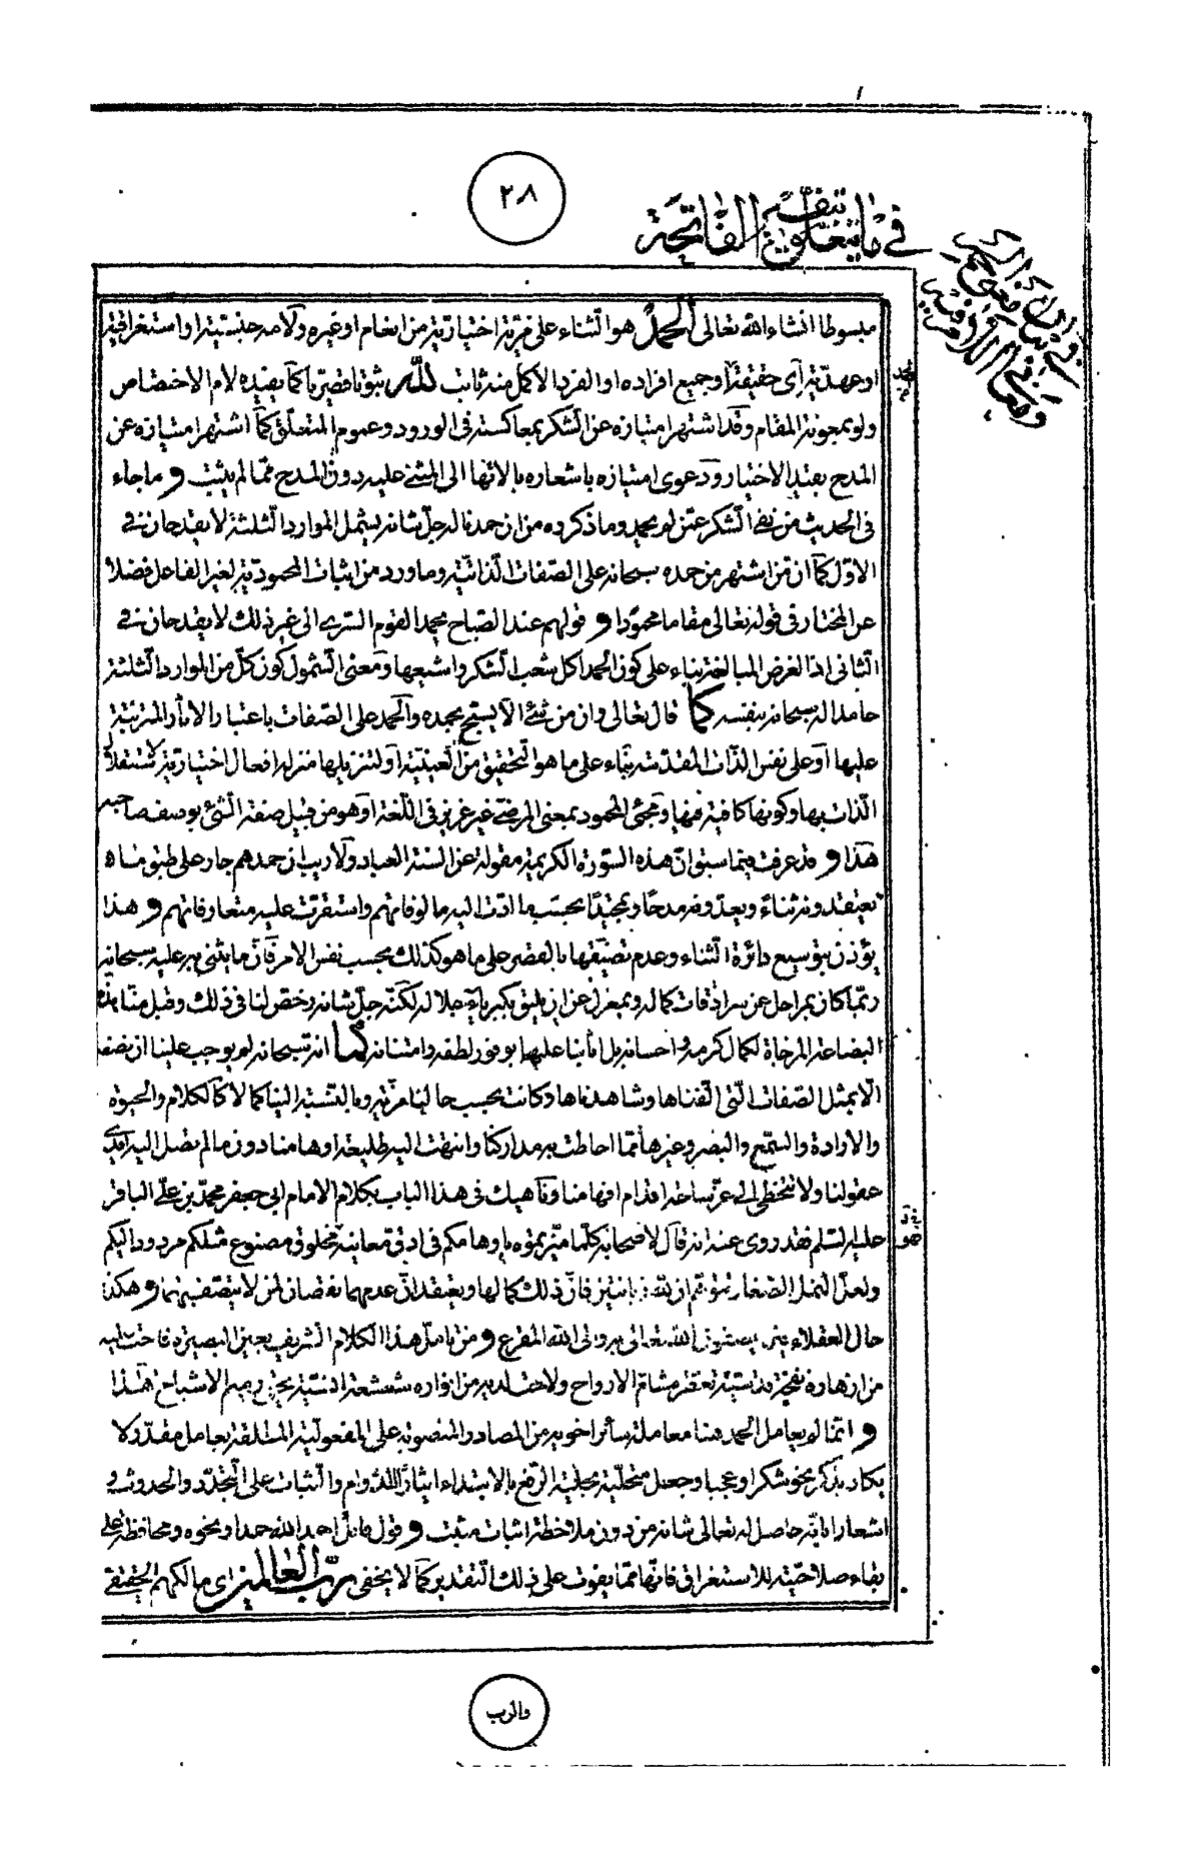 ٣٠٨
في ما يتعلق بتفسير الفاتحة
مبسوطا انشاء الله تعالى الحمد هو الثناء على مزية اختيارية من انعام او غيره ولامه جنسيته او استغراقية
او عهدية اى حقيقة او جميع افراده او الفرد الاكمل منه ثابت لله ثبوتا قصريا كما يفيده لام الاختصاص
ولو بمعونة المقام وقد اشتهر امتيازه عن الشكر بمعاكسته في الورود وعموم المتعلق كما اشتهر امتيازه عن
المدح بقيد الاختيار ودعوى امتيازه باشعاره بالانهاء الى المثنى عليه دون المدح مما لم يثبت و ما جاء
في الحديث من نفى الشكر عمن لم يحمد وما ذكروه من ان حمدنا له جل شانه يشمل الموارد الثلثة لا يقدحان في
الاول كما ان ما اشتهر من حمده سبحانه على الصفات الذاتية وما ورد من اثبات المحمودية لغير الفاعل فضلا
عن المختار في قوله تعالى مقاما محمودا و قولهم عند الصباح يحمد القوم السرى الى غير ذلك لا يقدحان في
الثاني اذ الغرض المبالغة بناء على كون الحمد اكمل شعب الشكر واشيعها ومعنى الشمول كون كل من الموارد الثلثة
حامدا له سبحانه بنفسه كما قال تعالى وان من شئ الا يسبح بحمده والحمد على الصفات باعتبار الاثار المترتبة
عليها او على نفس الذات المقدسة بناء على ما هو التحقيق من العينية او لتنزيلها منزلة افعال اختيارية لاستقلال
الذات بها وكونها كافية فيها ومجئ المحمود بمعنى المرضى غير عزيز في اللغة او هو من قبيل صفة الشئ بوصف صاحبه
هذا و قد عرفت فيما سبق ان هذه السورة الكريمة مقولة عن السنة العباد ولا ريب ان حمدهم جار على طبق ما
يعتقدونه ثناء ويعدونه مدحا وتمجيدا بحسب ما ادت اليه مالوفاتهم واستقرت عليه متعارفاتهم و هذا
يؤذن بتوسيع دائرة الثناء وعدم تضييقها بالقصر على ما هو كذلك بحسب نفس الامر فان ما يثنى به عليه سبحانه
ربما كان بمراحل عن سرادقات كماله وبمعزل عن ان يليق بكبرياء جلاله لكنه جل شانه رخص لنا في ذلك وقبل منا هذه
البضاعة المزجاة لكمال كرمه واحسانه بل اثابنا عليها بوفور لطفه وامتنانه كما انه سبحانه لم يوجب علينا ان نصفه
الا بمثل الصفات التى الفناها وشاهدناها وكانت بحسب حالنا مزية وبالنسبة الينا كمالا كالكلام والحيوة
والارادة والسمع والبصر وغيرها مما احاطت به مداركنا وانتهت اليه طليعة اوهامنا دون ما لم تصل اليه ايدى
عقولنا ولا تتخطى الى عز ساحته اقدام افهامنا وناهيك في هذا الباب بكلام الامام ابي جعفر محمد بن على الباقر
عليه السلم فقد روى عنه انه قال لاصحابه كلما ميزتموه باوهامكم في ادق معانيه مخلوق مصنوع مثلكم مردود اليكم
ولعل النمل الصغار تتوهم ان لله زبانيتين فان ذلك كمالها ويعتقد ان عدمهما نقصان لمن لا يتصف بهما و هكذا
حال العقلاء فيما يصفون الله تعالى به والى الله المفزع و من تامل هذا الكلام الشريف بعين البصيرة فاحت اليه
من ازهاره نفحة قدسية تعطر مشام الارواح ولاحت لديه من انواره شعشعة انسية تحيى رميم الاشباح هذا
و انما لم يعامل الحمد هنا معاملة سائر اخويه من المصادر المنصوبة على المفعولية المطلقة بعامل مقدر لا
يكاد يذكر نحو شكرا وعجبا وجعل متحلية بحلية الرفع بالابتداء ايثارا للدوام والثبات على التجدد والحدوث و
اشعارا بانه حاصل له تعالى شانه من دون ملاحظة اثبات مثبت و قول قائل احمد الله حمدا ونحوه ومحافظة على
بقاء صلاحيته للاستغراق فانها مما يفوت على ذلك التقدير كما لا يخفى رب العالمين اى مالكهم الحقيقى
والرب